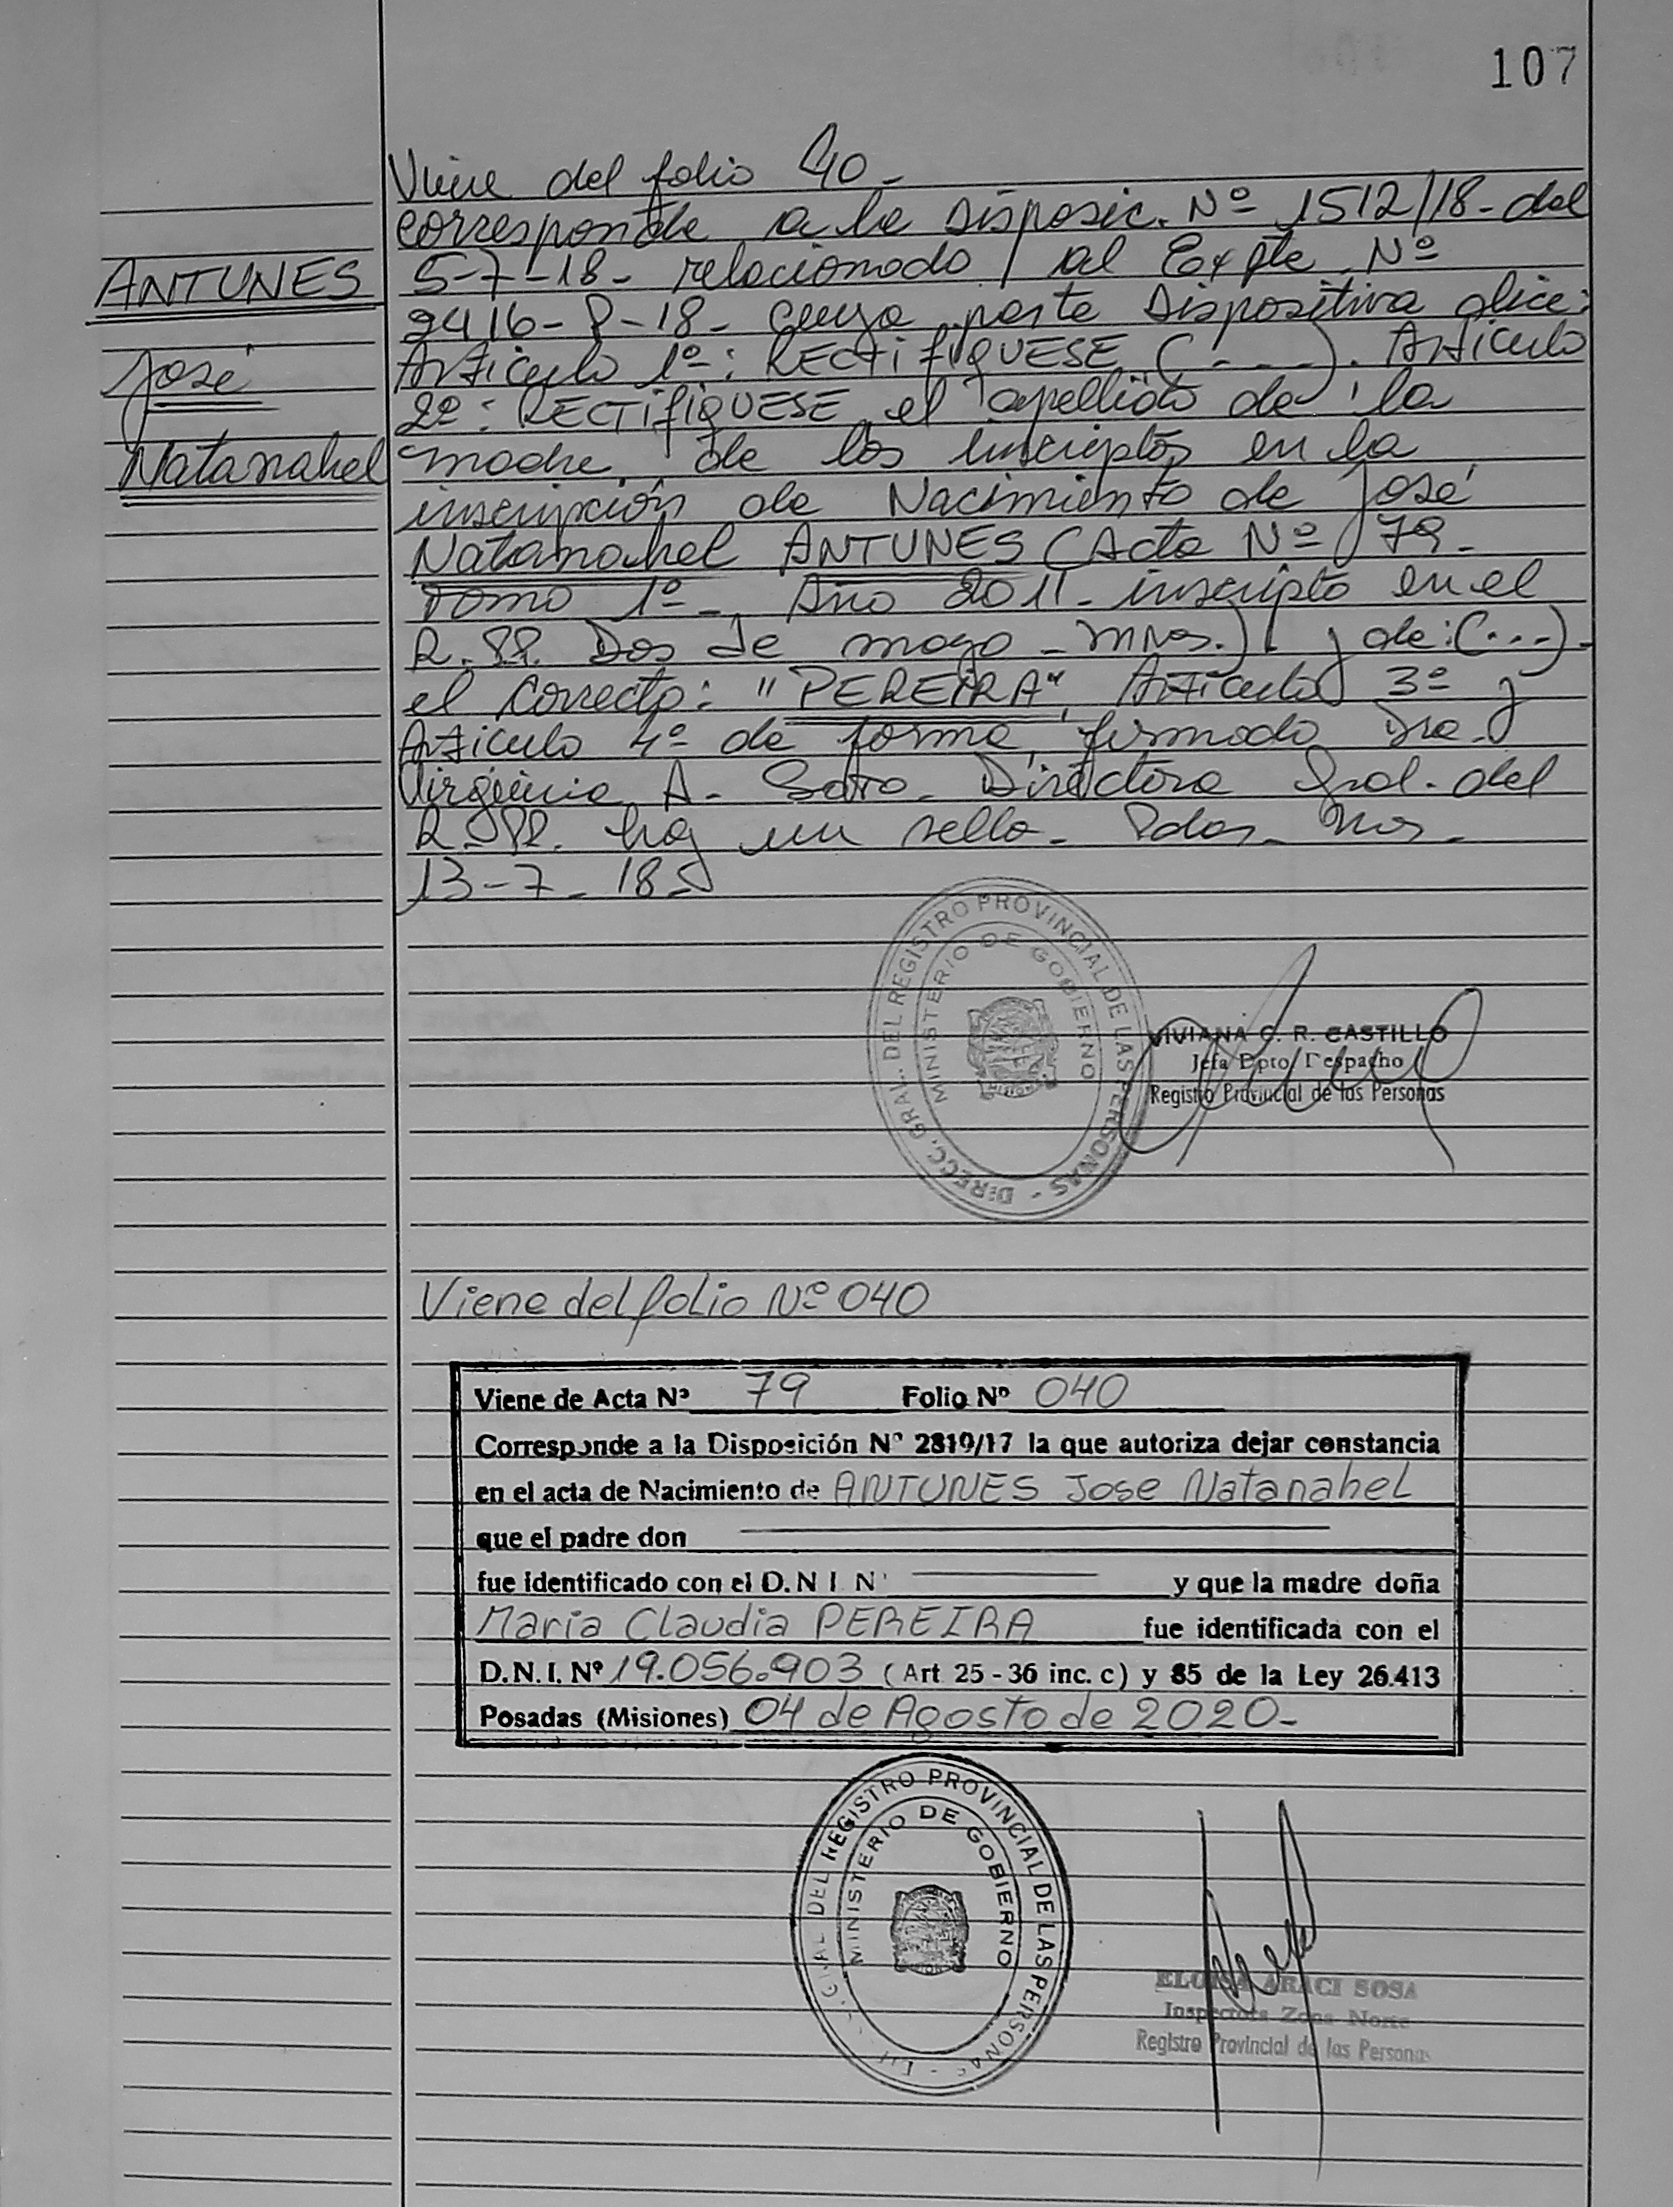 107
Viene del folio 40-
corresponde a la Disposic. Nº 1512/18- del
ANTUNES
5-7-18- relacionado al Expte Nº
2416-P-18- cuya parte Dispositiva dice:
José
Articulo 1º: RECTIFIQUESE (---). Articulo
2º: RECTIFIQUESE el apellido de la
Natanahel
madre de los inscriptos en la
inscripción de Nacimiento de José
Natanahel ANTUNES (Acta Nº 79-
Tomo 1º- Año 2011- inscripto en el
R.PP. Dos de mayo - Mnes.) y de: (...)-
el correcto: "PEREIRA", Articulo 3º y
Articulo 4º de forma, firmado Dra.
Virginia A. Soto- Directora Gral. del
R.PP. hay un sello- Pdas- Mnes-
13-7-18-
DIRECC. GRAL. DEL REGISTRO PROVINCIAL DE LAS PERSONAS -
MINISTERIO DE GOBIERNO
VIVIANA C. R. CASTILLO
Jefa Dpto Despacho
Registro Provincial de las Personas
Viene del folio Nº 040
Viene de Acta Nº 79 Folio Nº 040
Corresponde a la Disposición Nº 2819/17 la que autoriza dejar constancia
en el acta de Nacimiento de ANTUNES Jose Natanahel
que el padre don
fue identificado con el D.N I N° y que la madre doña
Maria Claudia PEREIRA fue identificada con el
D.N.I. Nº 19.056.903 (Art 25 - 36 inc. c) y 85 de la Ley 26.413
Posadas (Misiones) 04 de Agosto de 2020-
DEL REGISTRO PROVINCIAL DE LAS PERSONAS
MINISTERIO DE GOBIERNO
ELOISA ARACI SOSA
Inspectora Zona Norte
Registro Provincial de las Personas